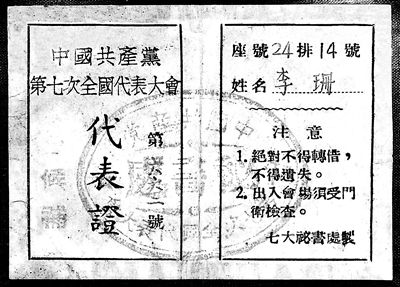 中國共產黨
第七次全國代表大會
代表證
候補
座號24排14號
姓名 李珊
注意
1. 絕對不得轉借，
不得遺失。
2. 出入會場須受門
衛檢查。
七大祕書處製